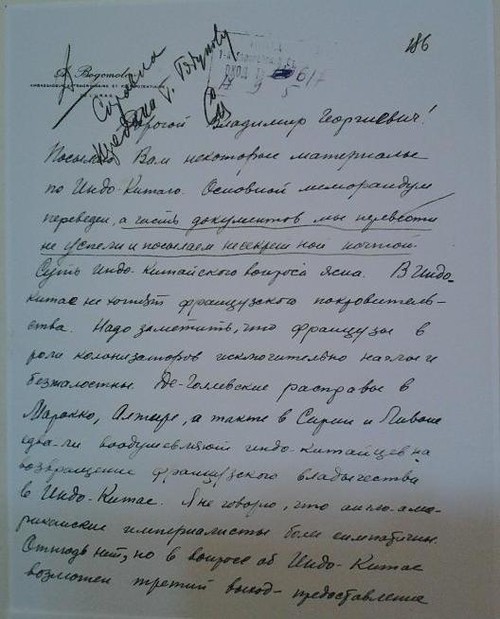 186
А. Bogomolov
Справка
передана т. Бдунову
ВХОД
Дорогой Владимир Георгиевич!
Посылаю Вам некоторые материалы
по Индо-Китаю. Основной меморандум
переведен, а часть документов мы перевести
не успели и посылаем несекретной почтой.
Суть Индо-Китайского вопроса ясна. В Индо-
китае не хотят французского покровитель-
ства. Надо заметить, что французы в
роли колонизаторов исключительно наглы и
безжалостны. Де-Голлевские расправы в
Марокко, Алжире, а также в Сирии и Ливане
едва-ли воодушевляют индо-китайцев на
возвращение французского владычества
в Индо-Китае. Я не говорю, что англо-аме-
риканские империалисты более симпатичны.
Отнюдь нет, но в вопросе об Индо-Китае
возможен третий выход - предоставление